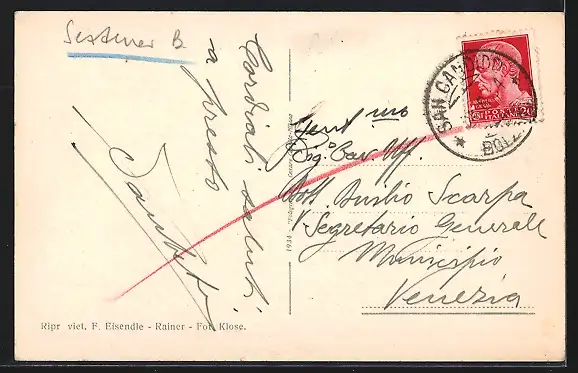 Sextener B.
Cordiali saluti
a presto
Gent mo
Sig. Cav. Uff.
Dott. Scarpa
V Segretario Generale
Municipio
Venezia
SAN CANDIDO
POSTE
ITALIANE
20
1934
Ripr. viet. F. Eisendle - Rainer - Fot. Klose.